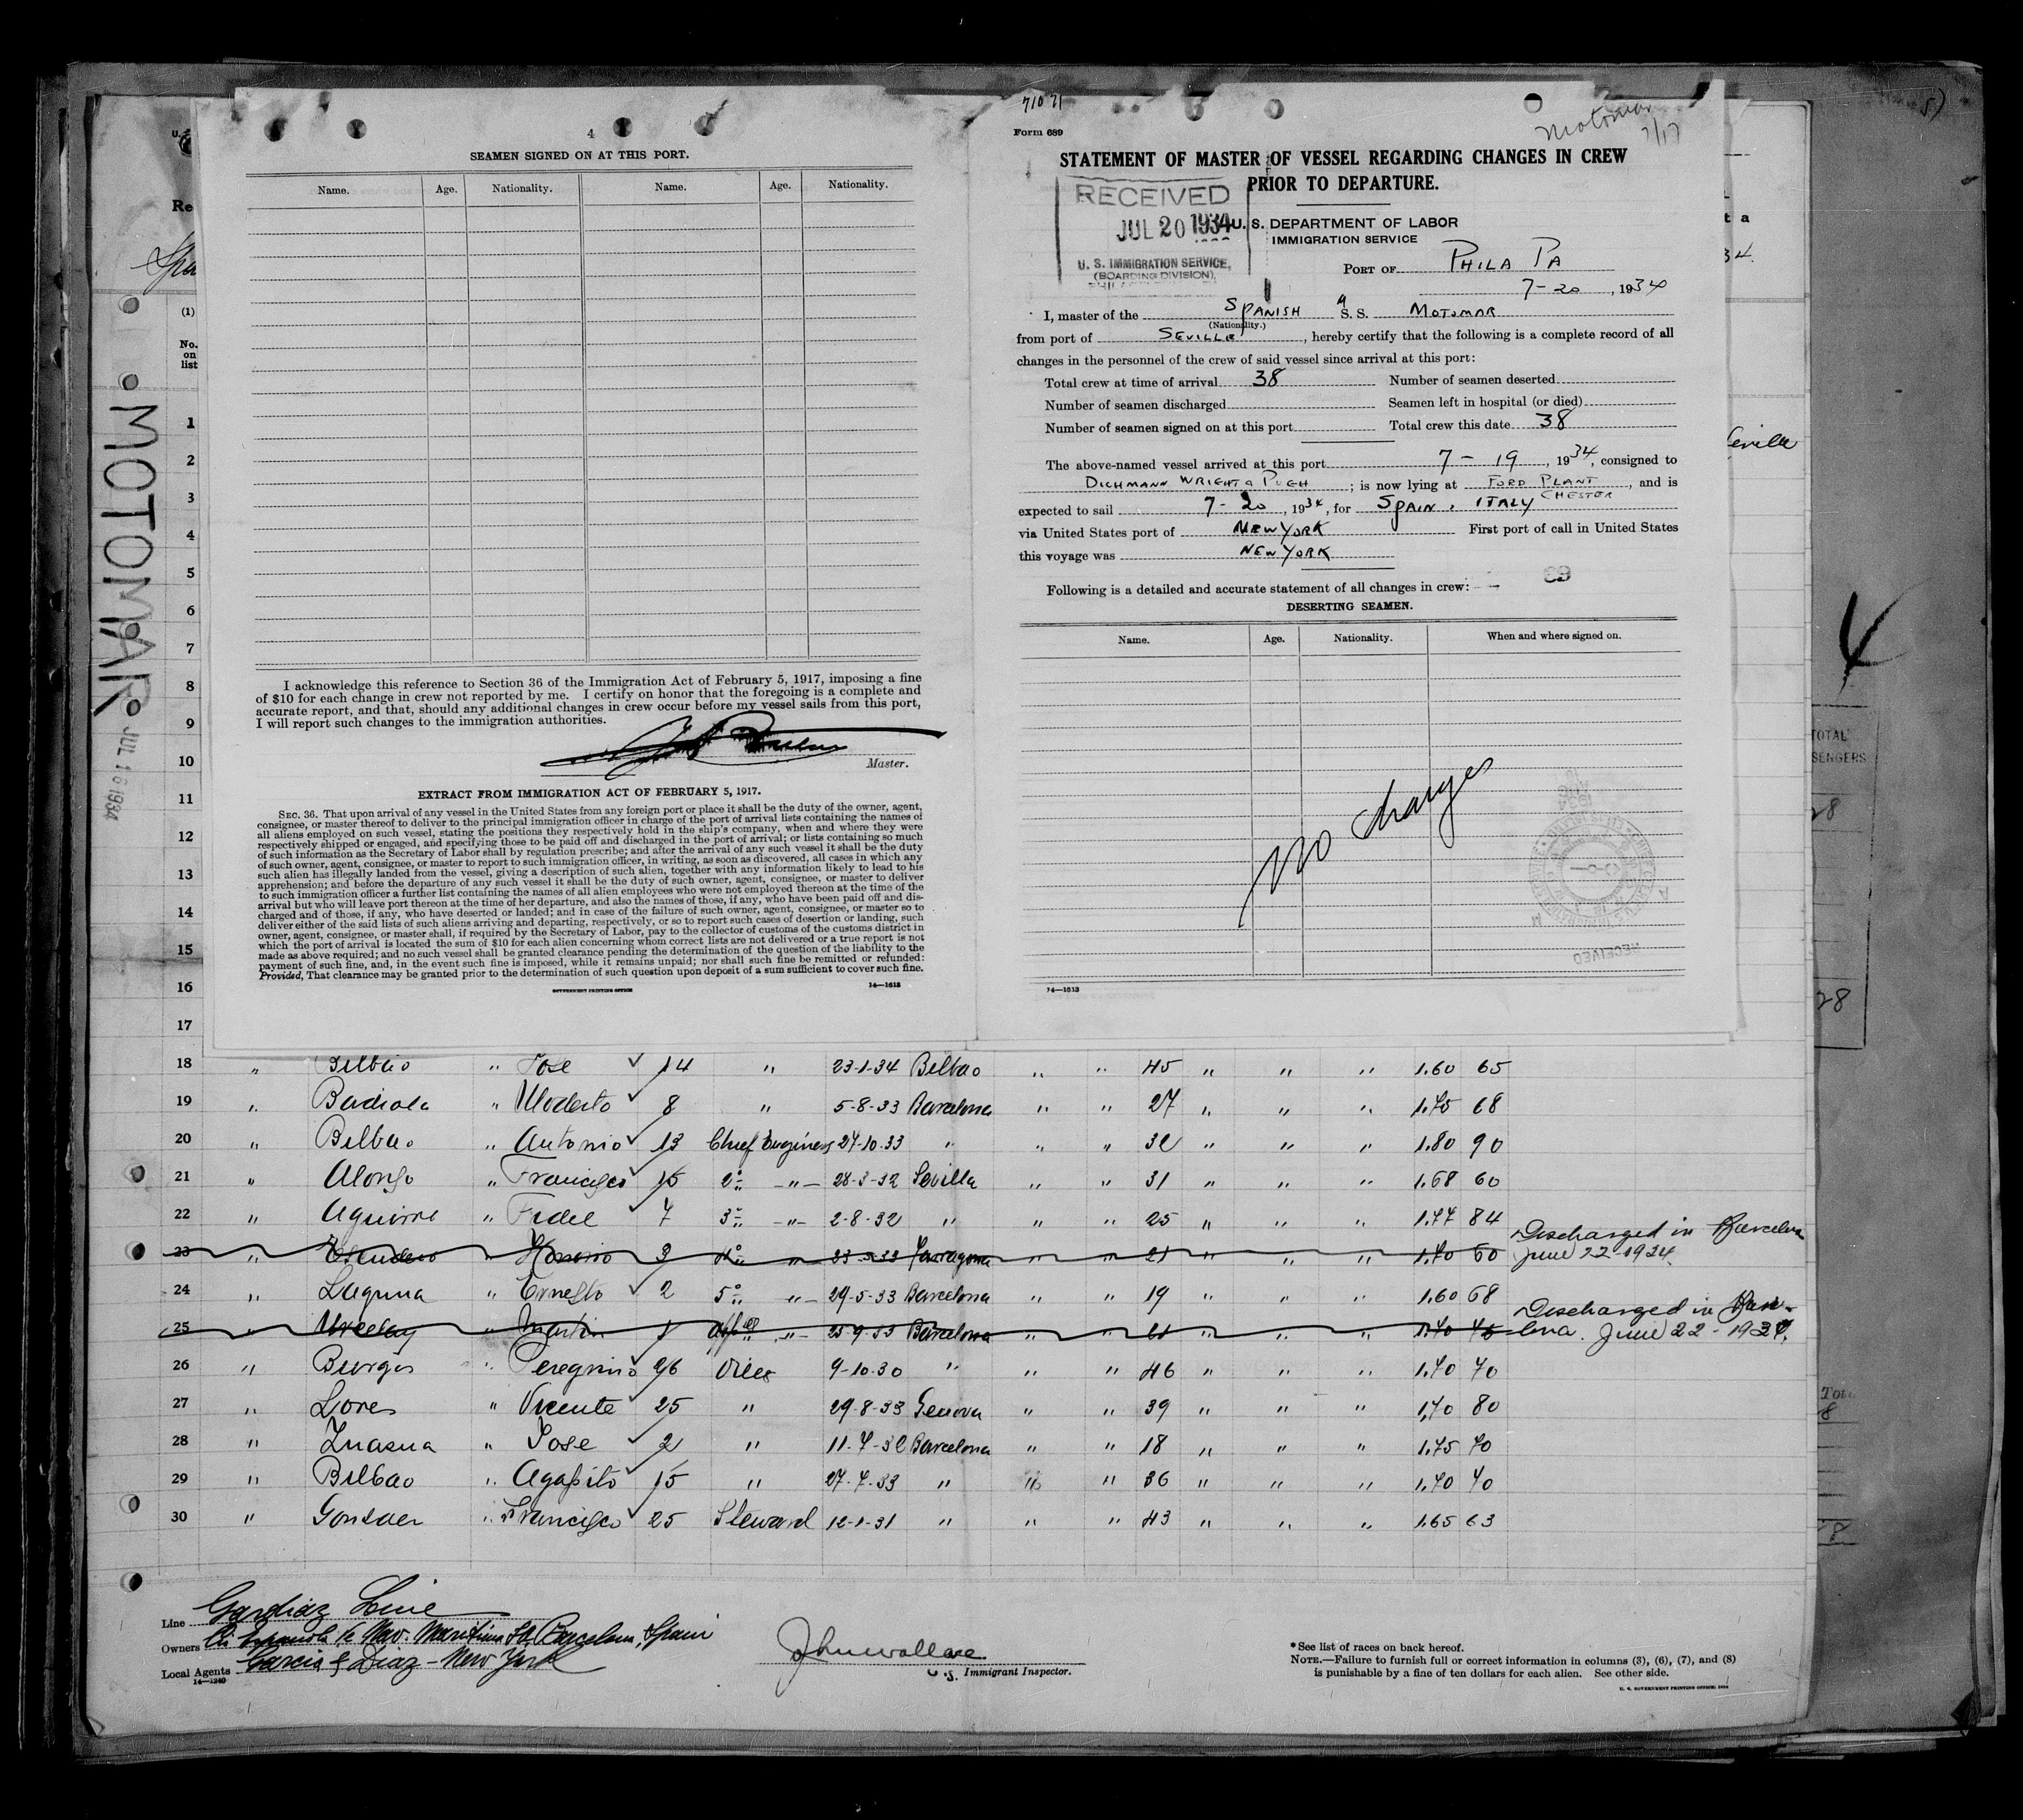 4
SEAMEN SIGNED ON AT THIS PORT.
Name. Age. Nationality. Name. Age. Nationality.
I acknowledge this reference to Section 36 of the Immigration Act of February 5, 1917, imposing a fine
of $10 for each change in crew not reported by me. I certify on honor that the foregoing is a complete and
accurate report, and that, should any additional changes in crew occur before my vessel sails from this port,
I will report such changes to the immigration authorities.
Master.
EXTRACT FROM IMMIGRATION ACT OF FEBRUARY 5, 1917.
SEC. 36. That upon arrival of any vessel in the United States from any foreign port or place it shall be the duty of the owner, agent,
consignee, or master thereof to deliver to the principal immigration officer in charge of the port of arrival lists containing the names of
all aliens employed on such vessel, stating the positions they respectively hold in the ship's company, when and where they were
respectively shipped or engaged, and specifying those to be paid off and discharged in the port of arrival; or lists containing so much
of such information as the Secretary of Labor shall by regulation prescribe; and after the arrival of any such vessel it shall be the duty
of such owner, agent, consignee, or master to report to such immigration officer, in writing, as soon as discovered, all cases in which any
such alien has illegally landed from the vessel, giving a description of such alien, together with any information likely to lead to his
apprehension; and before the departure of any such vessel it shall be the duty of such owner, agent, consignee, or master to deliver
to such immigration officer a further list containing the names of all alien employees who were not employed thereon at the time of the
arrival but who will leave port thereon at the time of her departure, and also the names of those, if any, who have been paid off and dis-
charged and of those, if any, who have deserted or landed; and in case of the failure of such owner, agent, consignee, or master so to
deliver either of the said lists of such aliens arriving and departing, respectively, or so to report such cases of desertion or landing, such
owner, agent, consignee, or master shall, if required by the Secretary of Labor, pay to the collector of customs of the customs district in
which the port of arrival is located the sum of $10 for each alien concerning whom correct lists are not delivered or a true report is not
made as above required; and no such vessel shall be granted clearance pending the determination of the question of the liability to the
payment of such fine, and, in the event such fine is imposed, while it remains unpaid; nor shall such fine be remitted or refunded:
Provided, That clearance may be granted prior to the determination of such question upon deposit of a sum sufficient to cover such fine.
GOVERNMENT PRINTING OFFICE 14—1613
71071
Form 689
Motomar
7/17
STATEMENT OF MASTER OF VESSEL REGARDING CHANGES IN CREW
PRIOR TO DEPARTURE.
RECEIVED
JUL 20 1934
U. S. IMMIGRATION SERVICE,
(BOARDING DIVISION),
U. S. DEPARTMENT OF LABOR
IMMIGRATION SERVICE
PORT OF PHILA PA
7-20, 1934
I, master of the SPANISH S. S. MOTOMAR
(Nationality.)
from port of SEVILLE, hereby certify that the following is a complete record of all
changes in the personnel of the crew of said vessel since arrival at this port:
Total crew at time of arrival 38 Number of seamen deserted
Number of seamen discharged Seamen left in hospital (or died)
Number of seamen signed on at this port Total crew this date 38
The above-named vessel arrived at this port 7-19, 1934, consigned to
DICHMANN WRIGHT & PUGH; is now lying at FORD PLANT CHESTER, and is
expected to sail 7-20, 1934, for SPAIN, ITALY
via United States port of NEW YORK First port of call in United States
this voyage was NEW YORK
Following is a detailed and accurate statement of all changes in crew:
DESERTING SEAMEN.
Name. Age. Nationality. When and where signed on.
No changes
RECEIVED
14—1613
MOTOMAR
JUL 16 1934
(1)
No.
on
list
1
2
3
4
5
6
7
8
9
10
11
12
13
14
15
16
17
Seville
TOTAL
28
28
18 " Bilbao " Jose 14 " 23-1-34 Bilbao " " 45 " " " 1.60 65
19 " Badiola " Modesto 8 " 5-8-33 Barcelona " " 27 " " " 1.75 68
20 " Bilbao " Antonio 13 Chief Engineer 27-10-33 " " " 32 " " " 1.80 90
21 " Alonso " Francisco 15 2º " 28-3-32 Sevilla " " 31 " " " 1.68 60
22 " Aguirre " Fidel 7 3º " 2-8-32 " " " 25 " " " 1.77 84
23 " Escudero " Honorio 3 4º " Tarragona " " 21 " " " 1.70 60 Discharged in Barcelona
June 22-1934.
24 " Laguna " Ernesto 2 5º " 29-5-33 Barcelona " " 19 " " " 1.60 68
25 " Martin 1 " 25-9-33 Barcelona " " 21 " " " 1.70 75 Discharged in Barce-
lona. June 22-1934.
26 " Burgos " Peregrino 26 Oiler 9-10-30 " " " 46 " " " 1.70 70
27 " Lores " Vicente 25 " 29-8-33 Genova " " 39 " " " 1.70 80
28 " Znasua " Jose 2 " 11-7-32 Barcelona " " 18 " " " 1.75 70
29 " Bilbao " Agapito 15 " 27-7-33 " " " 36 " " " 1.70 70
30 " Gonzalez " Francisco 25 Steward 12-1-31 " " " 43 " " " 1.65 63
Line Gardiaz Line
Owners Cia Española de Nav. Maritima SA, Barcelona, Spain
Local Agents Garcia & Diaz - New York
14—1240
John Wallace
U. S. Immigrant Inspector.
*See list of races on back hereof.
NOTE.—Failure to furnish full or correct information in columns (3), (6), (7), and (8)
is punishable by a fine of ten dollars for each alien. See other side.